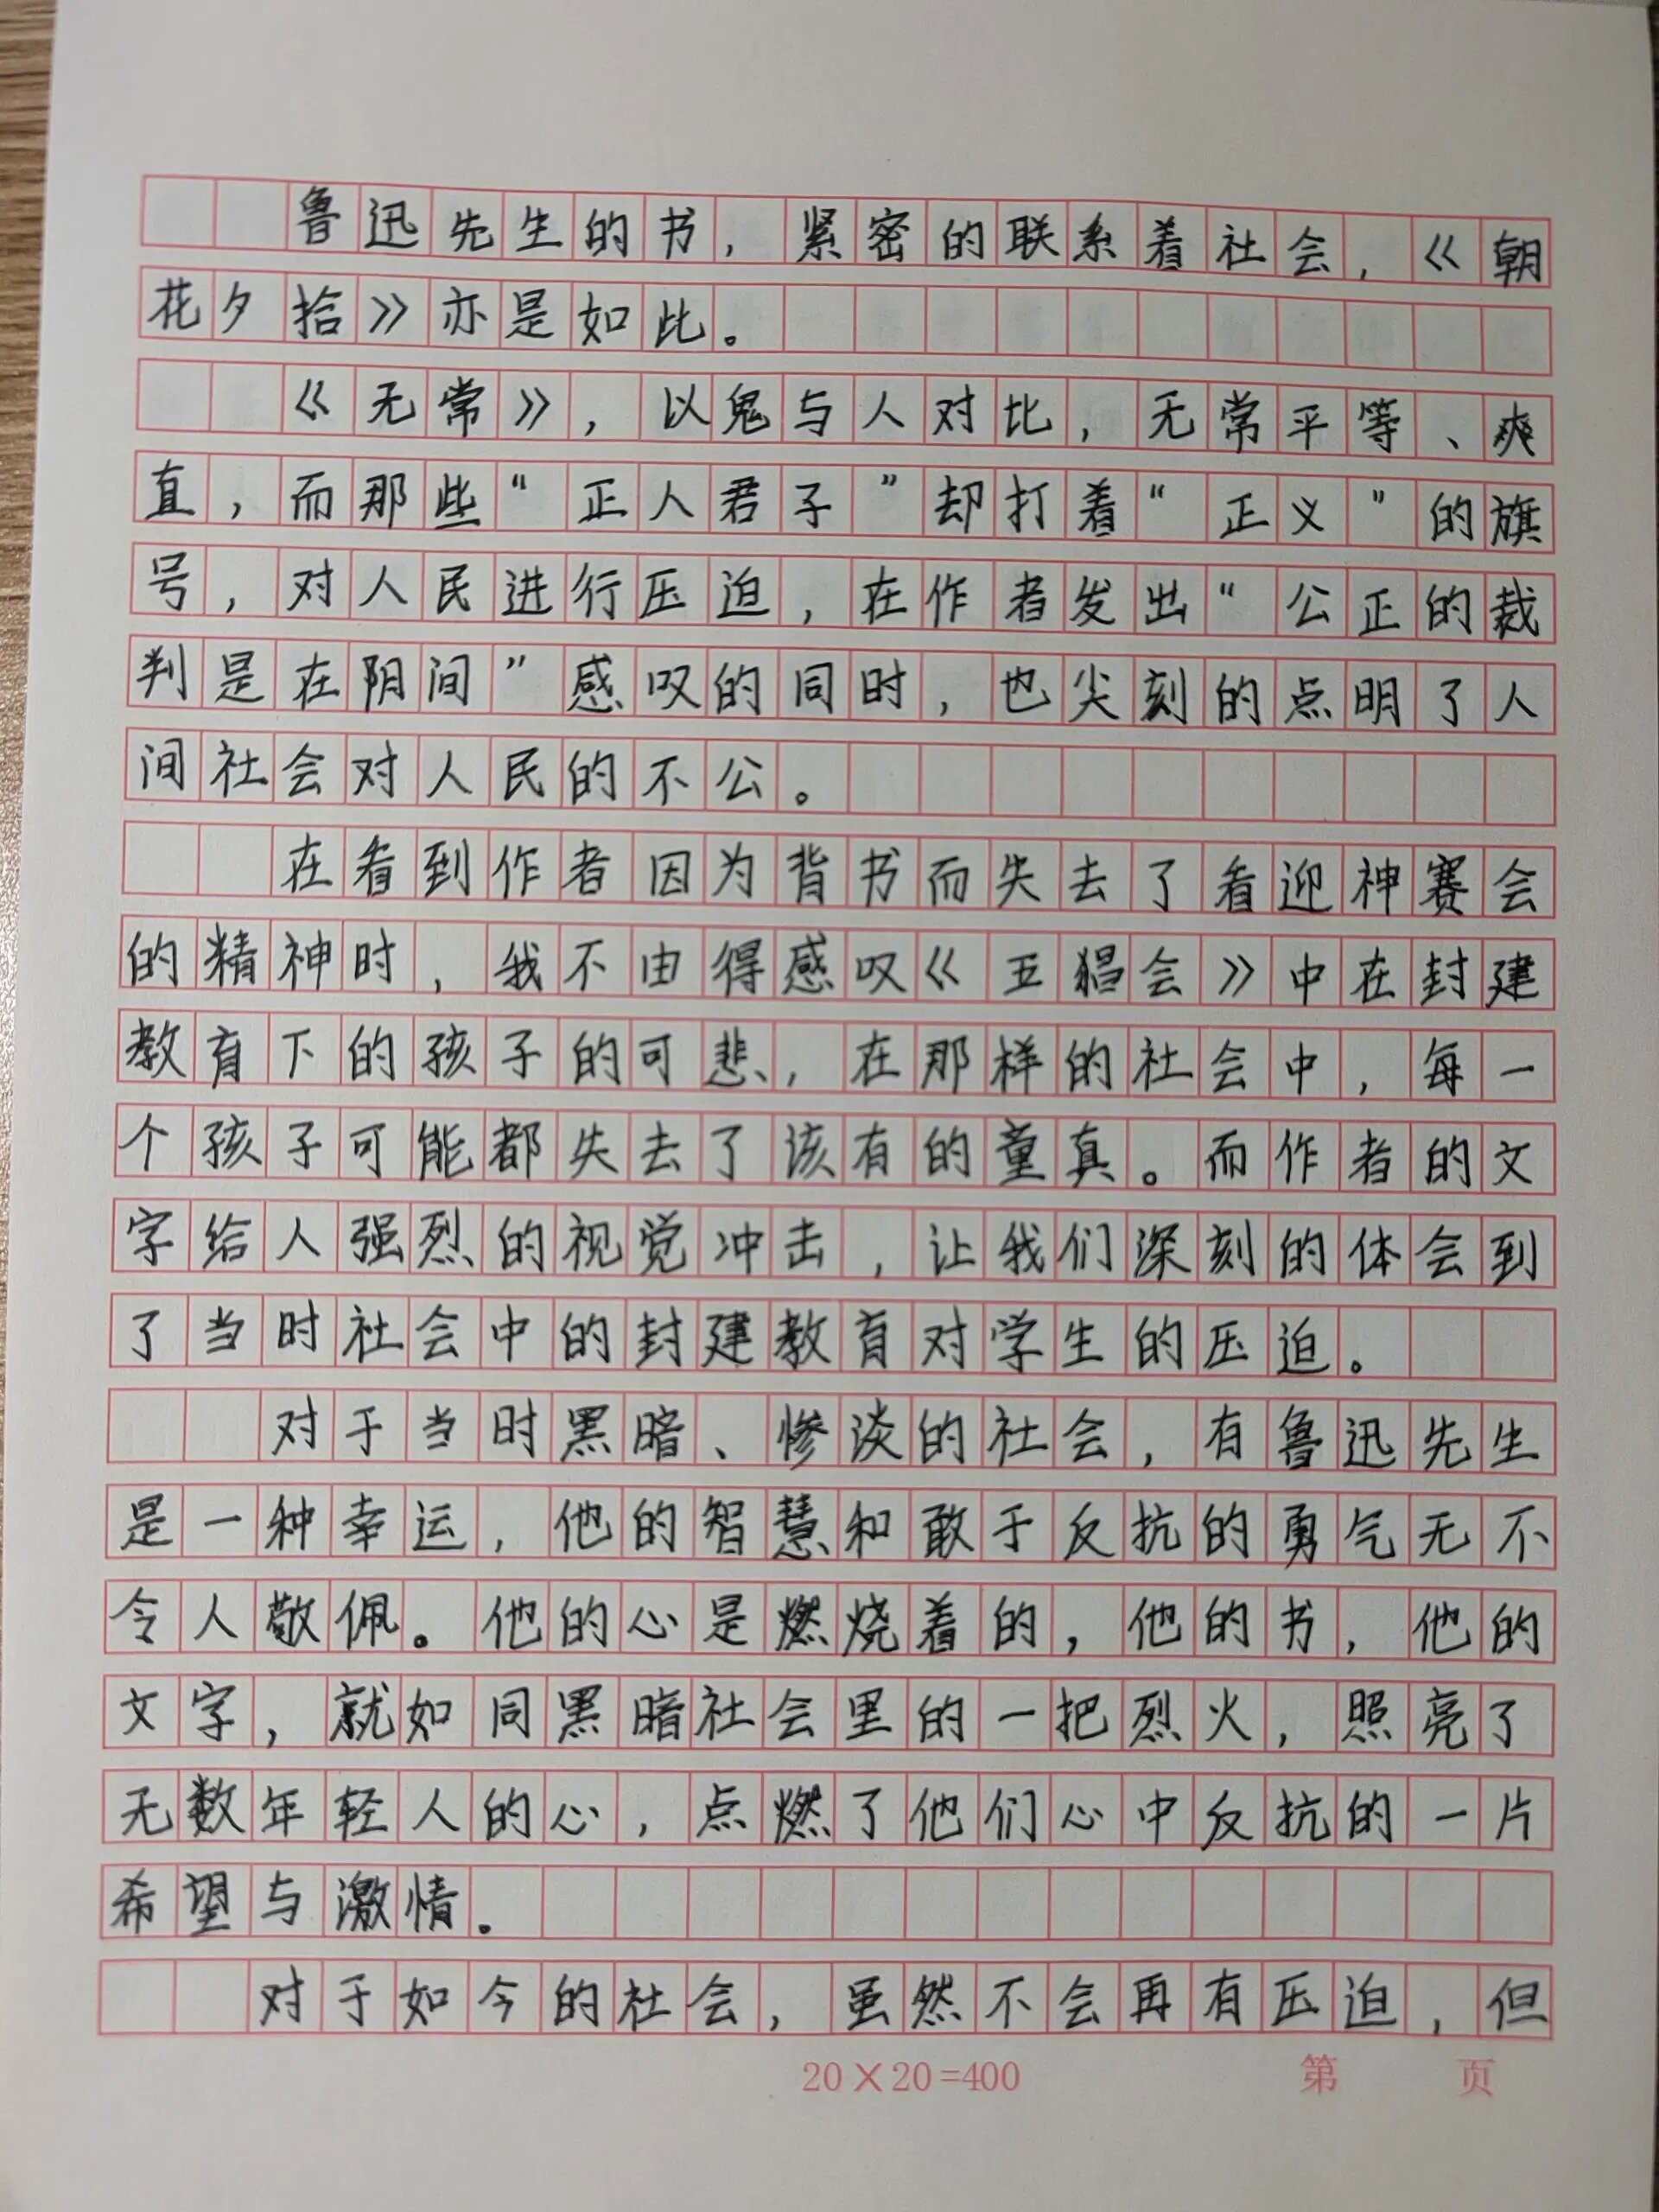 鲁迅先生的书，紧密的联系着社会，《朝
花夕拾》亦是如此。
《无常》，以鬼与人对比，无常平等、爽
直，而那些“正人君子”却打着“正义”的旗
号，对人民进行压迫，在作者发出“公正的裁
判是在阴间”感叹的同时，也尖刻的点明了人
间社会对人民的不公。
在看到作者因为背书而失去了看迎神赛会
的精神时，我不由得感叹《五猖会》中在封建
教育下的孩子的可悲，在那样的社会中，每一
个孩子可能都失去了该有的童真。而作者的文
字给人强烈的视觉冲击，让我们深刻的体会到
了当时社会中的封建教育对学生的压迫。
对于当时黑暗、惨淡的社会，有鲁迅先生
是一种幸运，他的智慧和敢于反抗的勇气无不
令人敬佩。他的心是燃烧着的，他的书，他的
文字，就如同黑暗社会里的一把烈火，照亮了
无数年轻人的心，点燃了他们心中反抗的一片
希望与激情。
对于如今的社会，虽然不会再有压迫，但
20×20=400 第 页